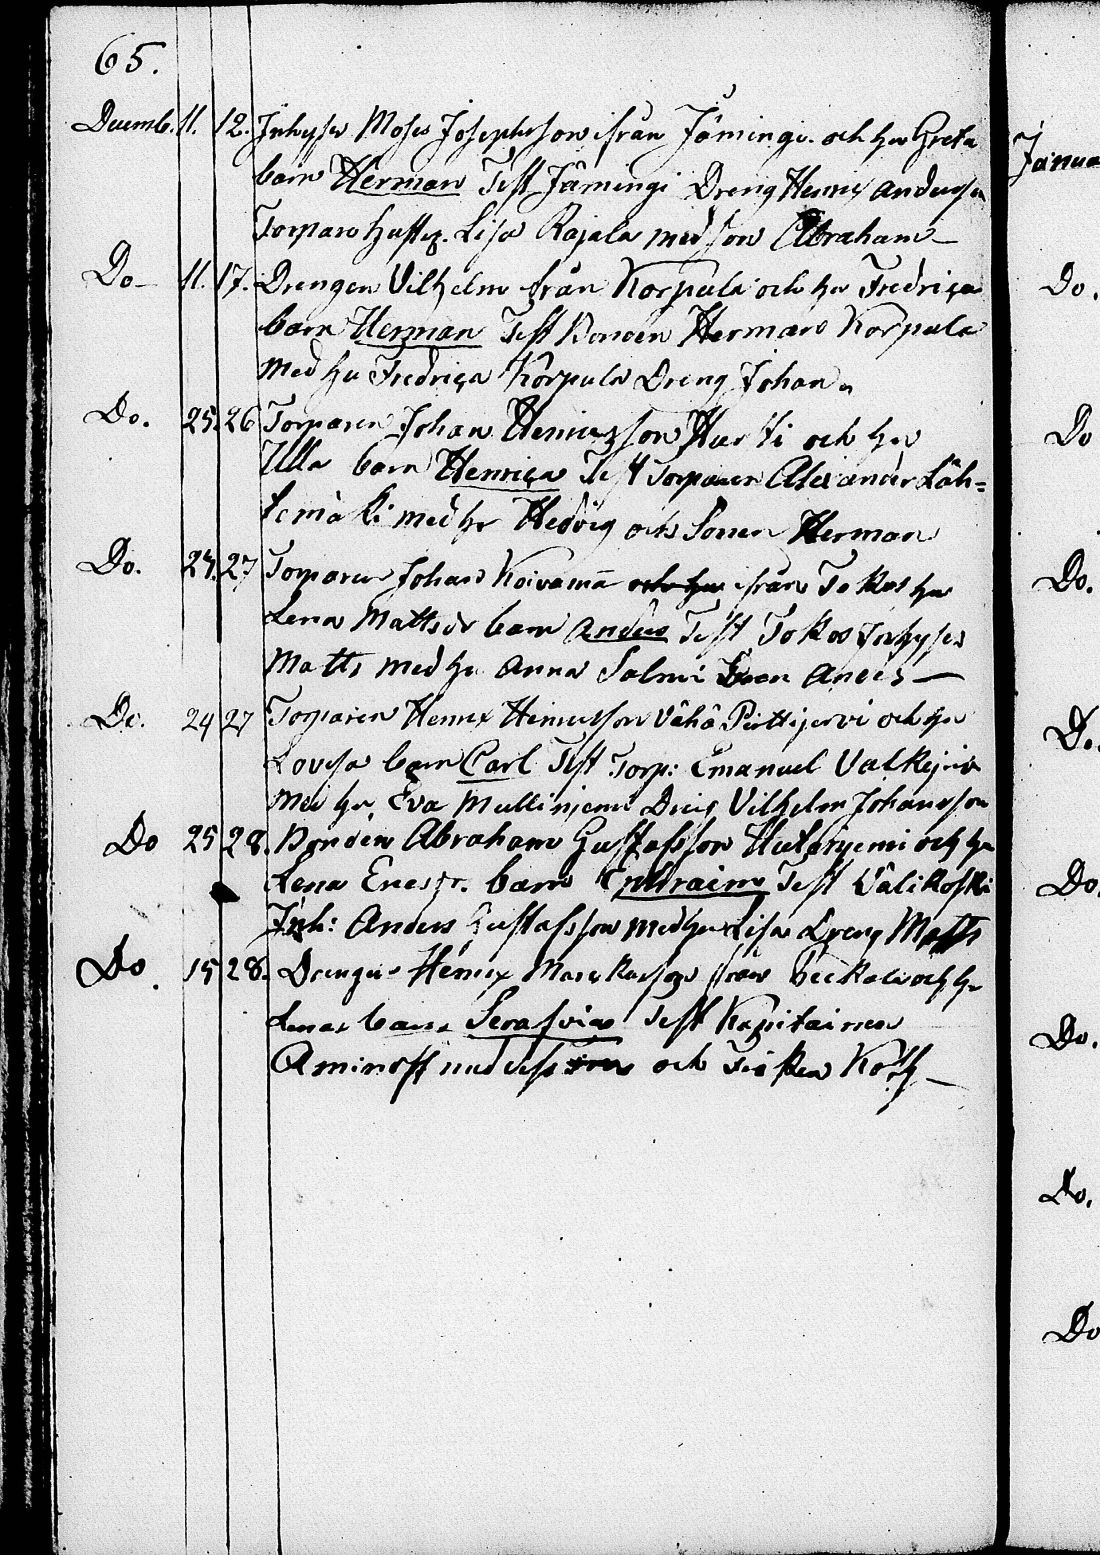 65.
Decemb. 11. 12. Inhyses Moses Josephsson ifrån Jämingi och hu Greta
barn Herman Test Jämingi Dreng Henrix Andersson
Torpare hust Lisa Rajala med son Abraham
Do 11. 17. Drengen Vilhelm från Korpula och hu Fredrica
barn Herman Test Bonden Herman Korpula
med hu Fredrica Korpula Dreng Johan
Do. 25. 26 Torparen Johan Henricsson Hurti och hu
Ulla barn Henrica Test Torparen Alexander Läh=
temäki med hu Hedvig och Sonen Herman
Do. 27 Torparen Johan Koivamä och hu ifrån Tokos hu
Lena Mattsdr barn Anders Test Tokos Inhyses
Matts med hu Anna Salmi Anders
Do. 24 27 Torparen Henrix Henricsson Vähä Pirttijervi och hu
Lovisa barn Carl Test Torp: Emanuel Valkejervi
med hu Eva Vilhelm Johansson
Do 25 28. Bonden Abraham Gustafsson och hu
Lena barn Ephraim Test Välikoski
Inh: Anders Gustafsson med hu Lisa Dreng Matts
Do. 15 28. Drengen Henrix från och hu
Lena barn Serafvia Test Kapitainen
Aminoff med och Fröken Koth
Janua
Do.
Do
Do.
Do.
Do.
Do.
Do.
Do